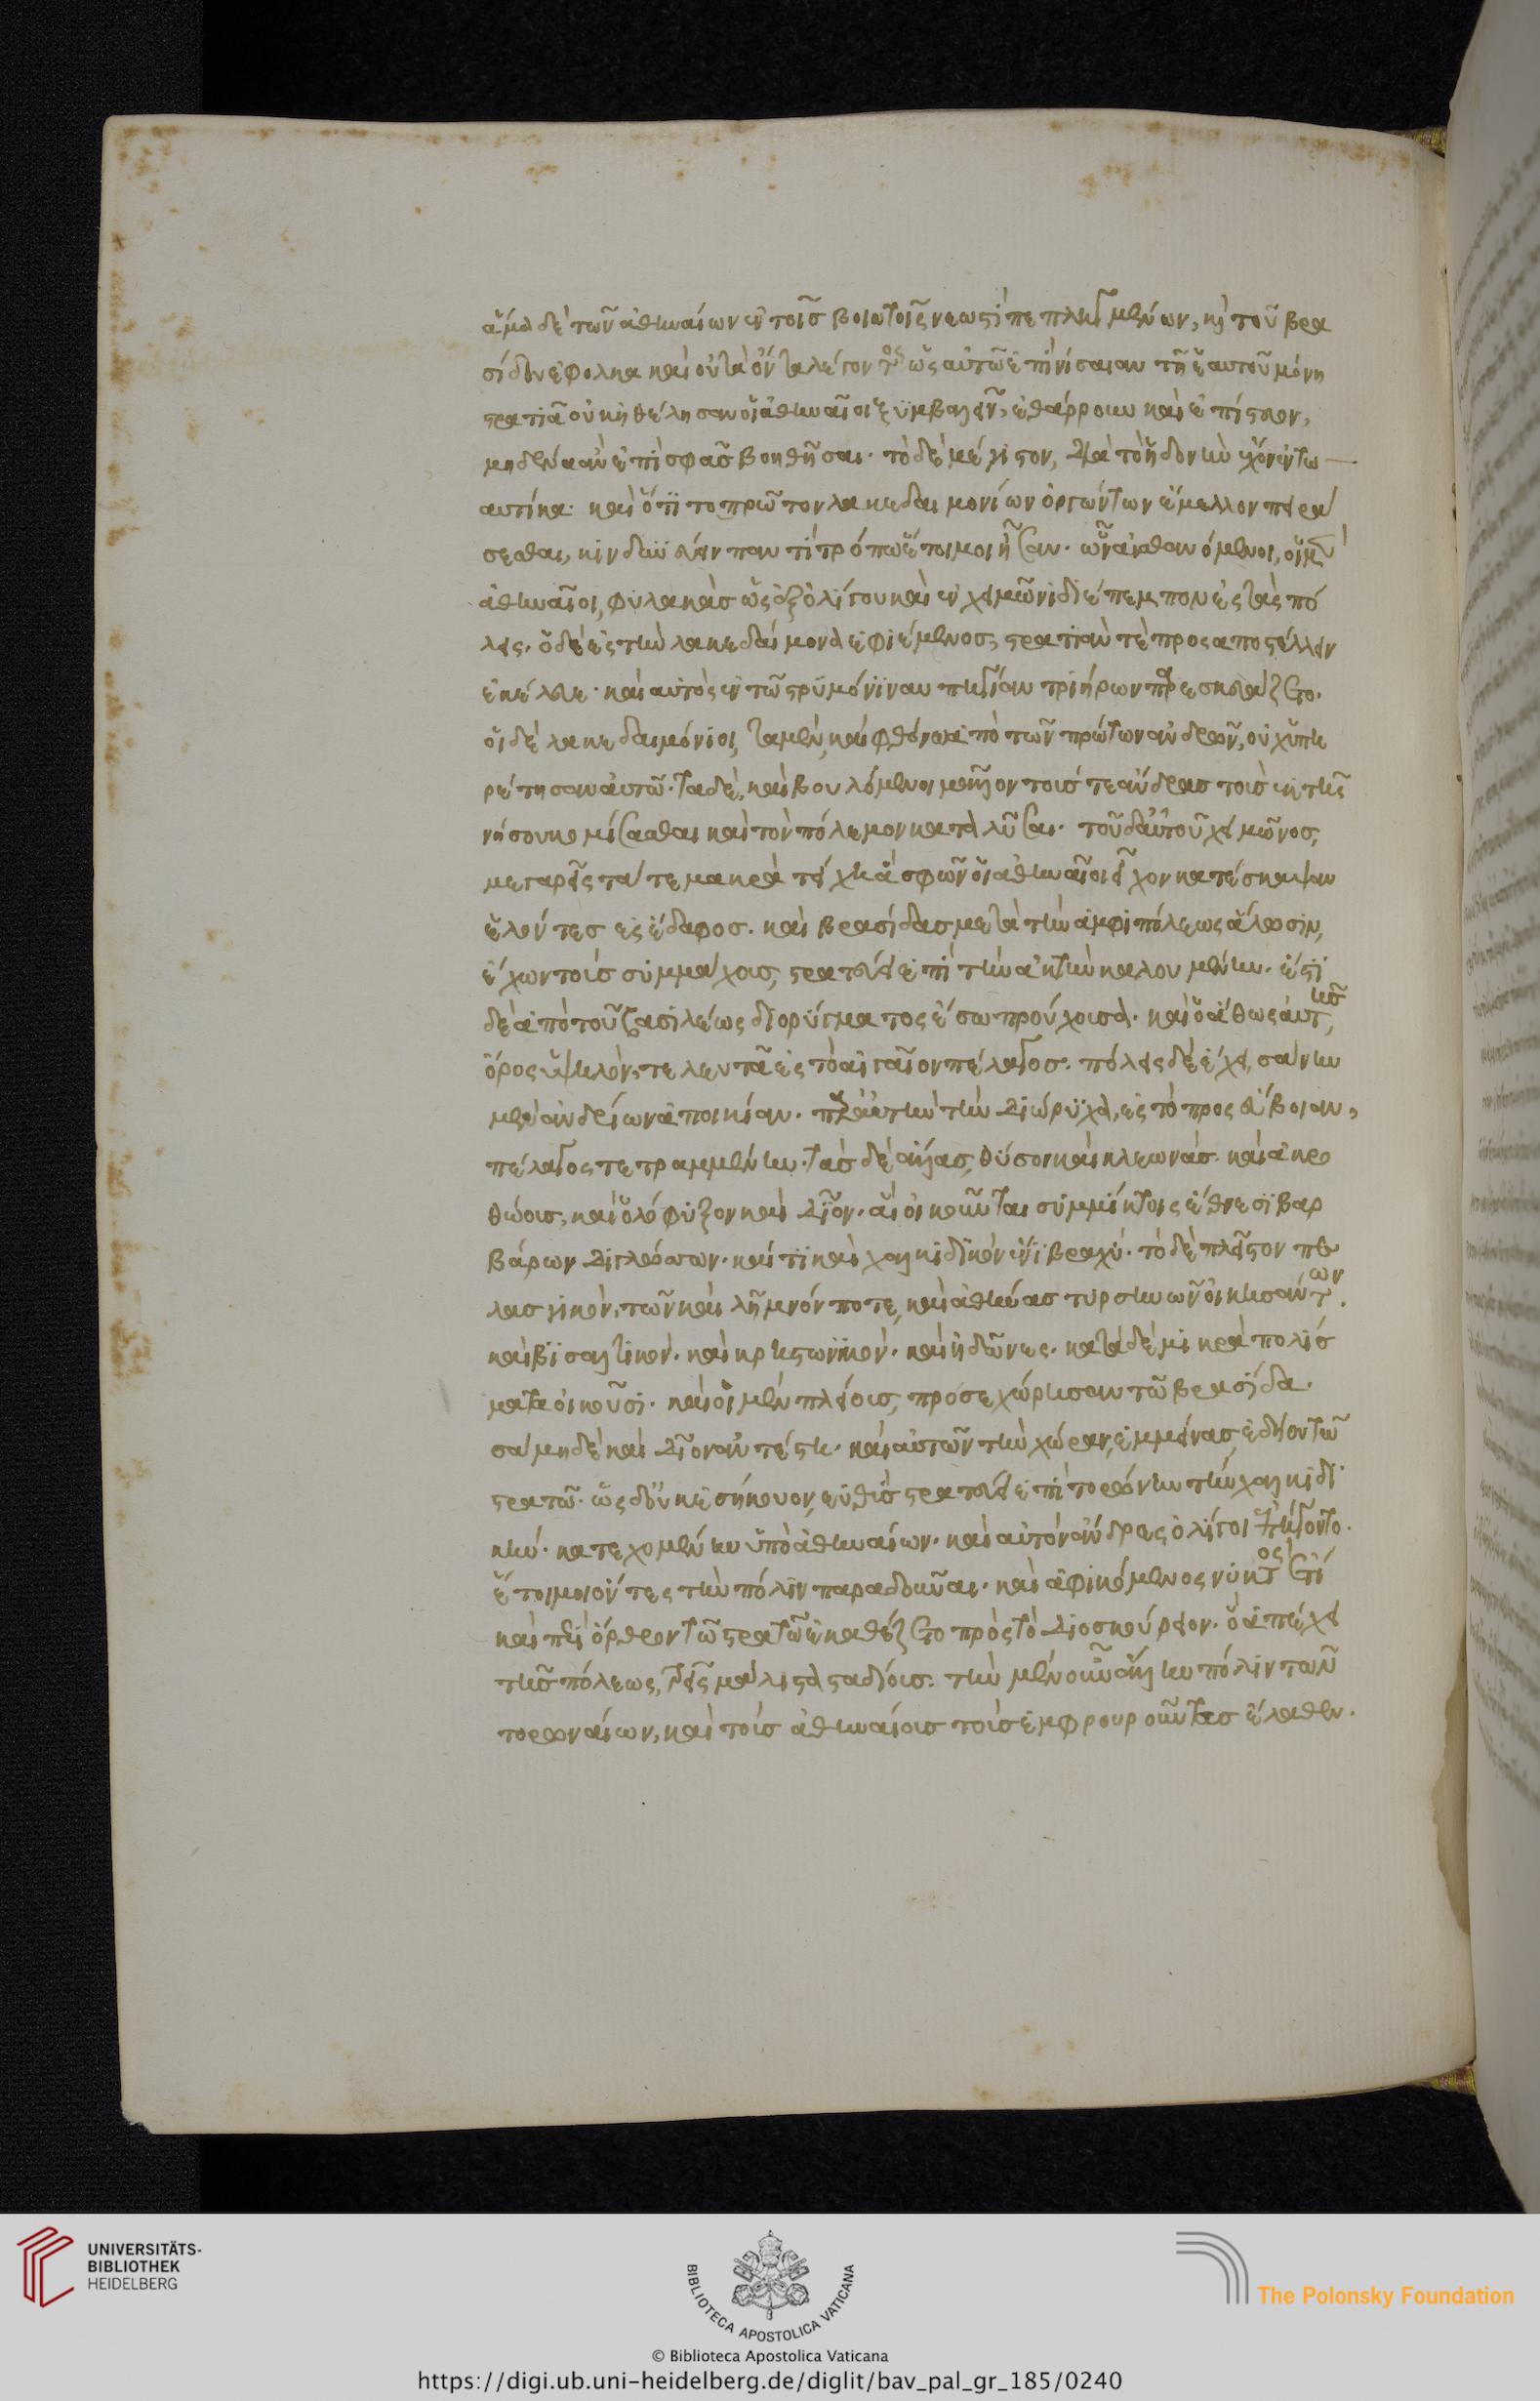 ἅμα δὲ τῶν ἀθηναίων ἐν τοῖς βοιωτοῖς νεωστὶ πεπληγμένων, καὶ τοῦ βρα
σίδου ἐφολκὰ καὶ οὐ τὰ ὄντα λέγοντος ὡς αὐτῶ ἐπὶ νίσαιαν τῇ ἑαυτοῦ μόνῃ
στρατιᾷ οὐκ ἠθέλησαν οἱ ἀθηναῖοι ξυμβαλεῖν, ἐθάρρουν καὶ ἐπίστευον,
μηδένα ἂν ἐπὶ σφᾶς βοηθῆσαι. τὸ δὲ μέγιστον, διὰ τὸ ἡδονὴν ἔχον ἐν τῶ
αυτίκα. καὶ ὅτι το πρῶτον λακεδαιμονίων ὀργώντων ἔμελλον πειρά
σεσθαι, κινδυνεύειν παντὶ τρόπω ἕτοιμοι ἦσαν. ὧν αἰσθανόμενοι, οἱ μὲν
ἀθηναῖοι, φυλακὰς ὡς ἐξ ὀλίγου καὶ ἐν χειμῶνι διέπεμπον ἐς τὰς πό
λεις. ὁ δὲ ἐς τὴν λακεδαίμονα ἐφιέμενος, στρατιάν τὲ προσαποστέλλειν
ἐκέλευε. καὶ αὐτὸς ἐν τῶ στρυμόνι ναυπηγίαν τριήρων παρεσκευάζετο.
οἱ δὲ λακεδαιμόνιοι, τὰ μὲν, καὶ φθόνω ἀπὸ τῶν πρώτων ἀνδρῶν, οὐχ ὑπη
ρέτησαν αὐτῶ. τὰ δὲ, καὶ βουλόμενοι μᾶλλον τούς τε ἄνδρας τοὺς ἐκ τῆς
νήσου κομίσασθαι καὶ τὸν πόλεμον καταλῦσαι. τοῦ δ' αὐτοῦ χειμῶνος,
μεγαρεῖς τά τε μακρὰ τείχη ἃ σφῶν οἱ ἀθηναῖοι εἶχον κατέσκαψαν
ἑλόντες ἐς ἔδαφος. καὶ βρασίδας μετὰ τὴν ἀμφιπόλεως ἅλωσιν,
ἔχων τοὺς συμμάχους, στρατεύει ἐπὶ τὴν ἀκτὴν καλουμένην. ἔστι
δὲ ἀπὸ τοῦ βασιλέως διορύγματος ἔσω προύχουσα. καὶ ὁ ἄθως αὐτῆς,
ὄρος ὑψηλὸν, τελευτᾶ ἐς τὸ αἰγαῖον πέλαγος. πόλεις δὲ ἔχει, σάνην
μὲν ἀνδρίων ἀποικίαν. παρ' αὐτὴν τὴν διώρυχα, ἐς τὸ προς εὔβοιαν,
πέλαγος τετραμμένην. τὰς δὲ ἄλλας, θύσον καὶ κλεωνάς. καὶ ἀκρο
θώους, καὶ ὀλόφυξον καὶ δῖον. αἳ οἰκοῦνται συμμίκτοις ἔθνεσι βαρ
βάρων διγλώσσων. καί τι καὶ χαλκιδικὸν ἔνι βραχύ. τὸ δὲ πλεῖστον πε
λασγικὸν, τῶν καὶ λῆμνόν ποτε, καὶ ἀθήνας τυρσηνῶν οἰκησάντων.
καὶ βισαλτικὸν. καὶ κρηστωνικόν. καὶ ἠδῶνες. κατὰ δὲ μικρὰ πολίσ
ματα οἰκοῦσι. καὶ οἱ μὲν πλείους, προσεχώρησαν τῶ βρασίδα.
σάνη δὲ καὶ δῖον ἀντέστη. καὶ αὐτῶν τὴν χώραν, ἐμμείνας, ἐδήου τῶ
στρατῶ. ὡς δ' οὐκ ἐσήκουον, εὐθὺς στρατεύει ἐπὶ τορώνην τὴν χαλκιδι
κήν. κατεχομένην ὑπὸ ἀθηναίων. καὶ αὐτὸν ἄνδρες ὀλίγοι ἐπήγοντο.
ἕτοιμοι ὄντες τὴν πόλιν παραδοῦναι. καὶ ἀφικόμενος νύκτος ἔτι
καὶ περὶ ὄρθρον τῶ στρατῶ ἐκαθέζετο πρὸς τὸ διοσκούρειον. ὃ ἀπέχει
τῆς πόλεως, τρεῖς μάλιστα σταδίους. τὴν μὲν οὖν ἄλλην πόλιν τῶν
τορωναίων, καὶ τοὺς ἀθηναίους τοὺς ἐμφρουροῦντας ἔλαθεν.
UNIVERSITÄTS-
BIBLIOTHEK
HEIDELBERG
BIBLIOTECA APOSTOLICA VATICANA
The Polonsky Foundation
© Biblioteca Apostolica Vaticana
https://digi.ub.uni-heidelberg.de/diglit/bav_pal_gr_185/0240